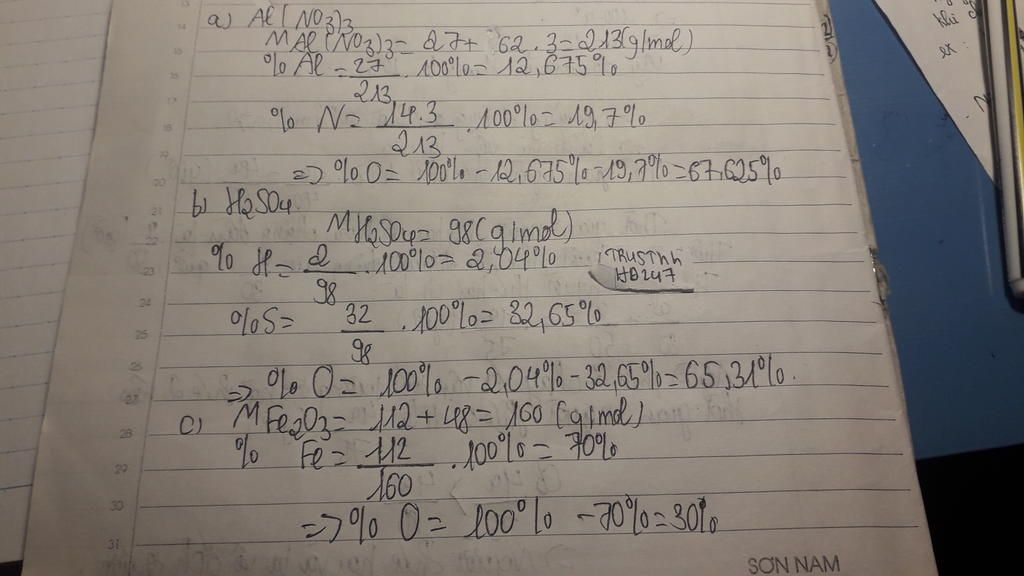 a) Al(NO3)3
MAl(NO3)3 = 27 + 62 . 3 = 213(g/mol)
% Al = 27/213 . 100% = 12,675%
% N = 14.3/213 . 100% = 19,7%
=> % O = 100% - 12,675% - 19,7% = 67,625%
b) H2SO4
MH2SO4 = 98(g/mol)
% H = 2/98 . 100% = 2,04%
TRUSTnn
HĐ247
%S = 32/98 . 100% = 32,65%
=> % O = 100% - 2,04% - 32,65% = 65,31%.
c) MFe2O3 = 112 + 48 = 160 (g/mol)
% Fe = 112/160 . 100% = 70%
=> % O = 100% - 70% = 30%
SƠN NAM